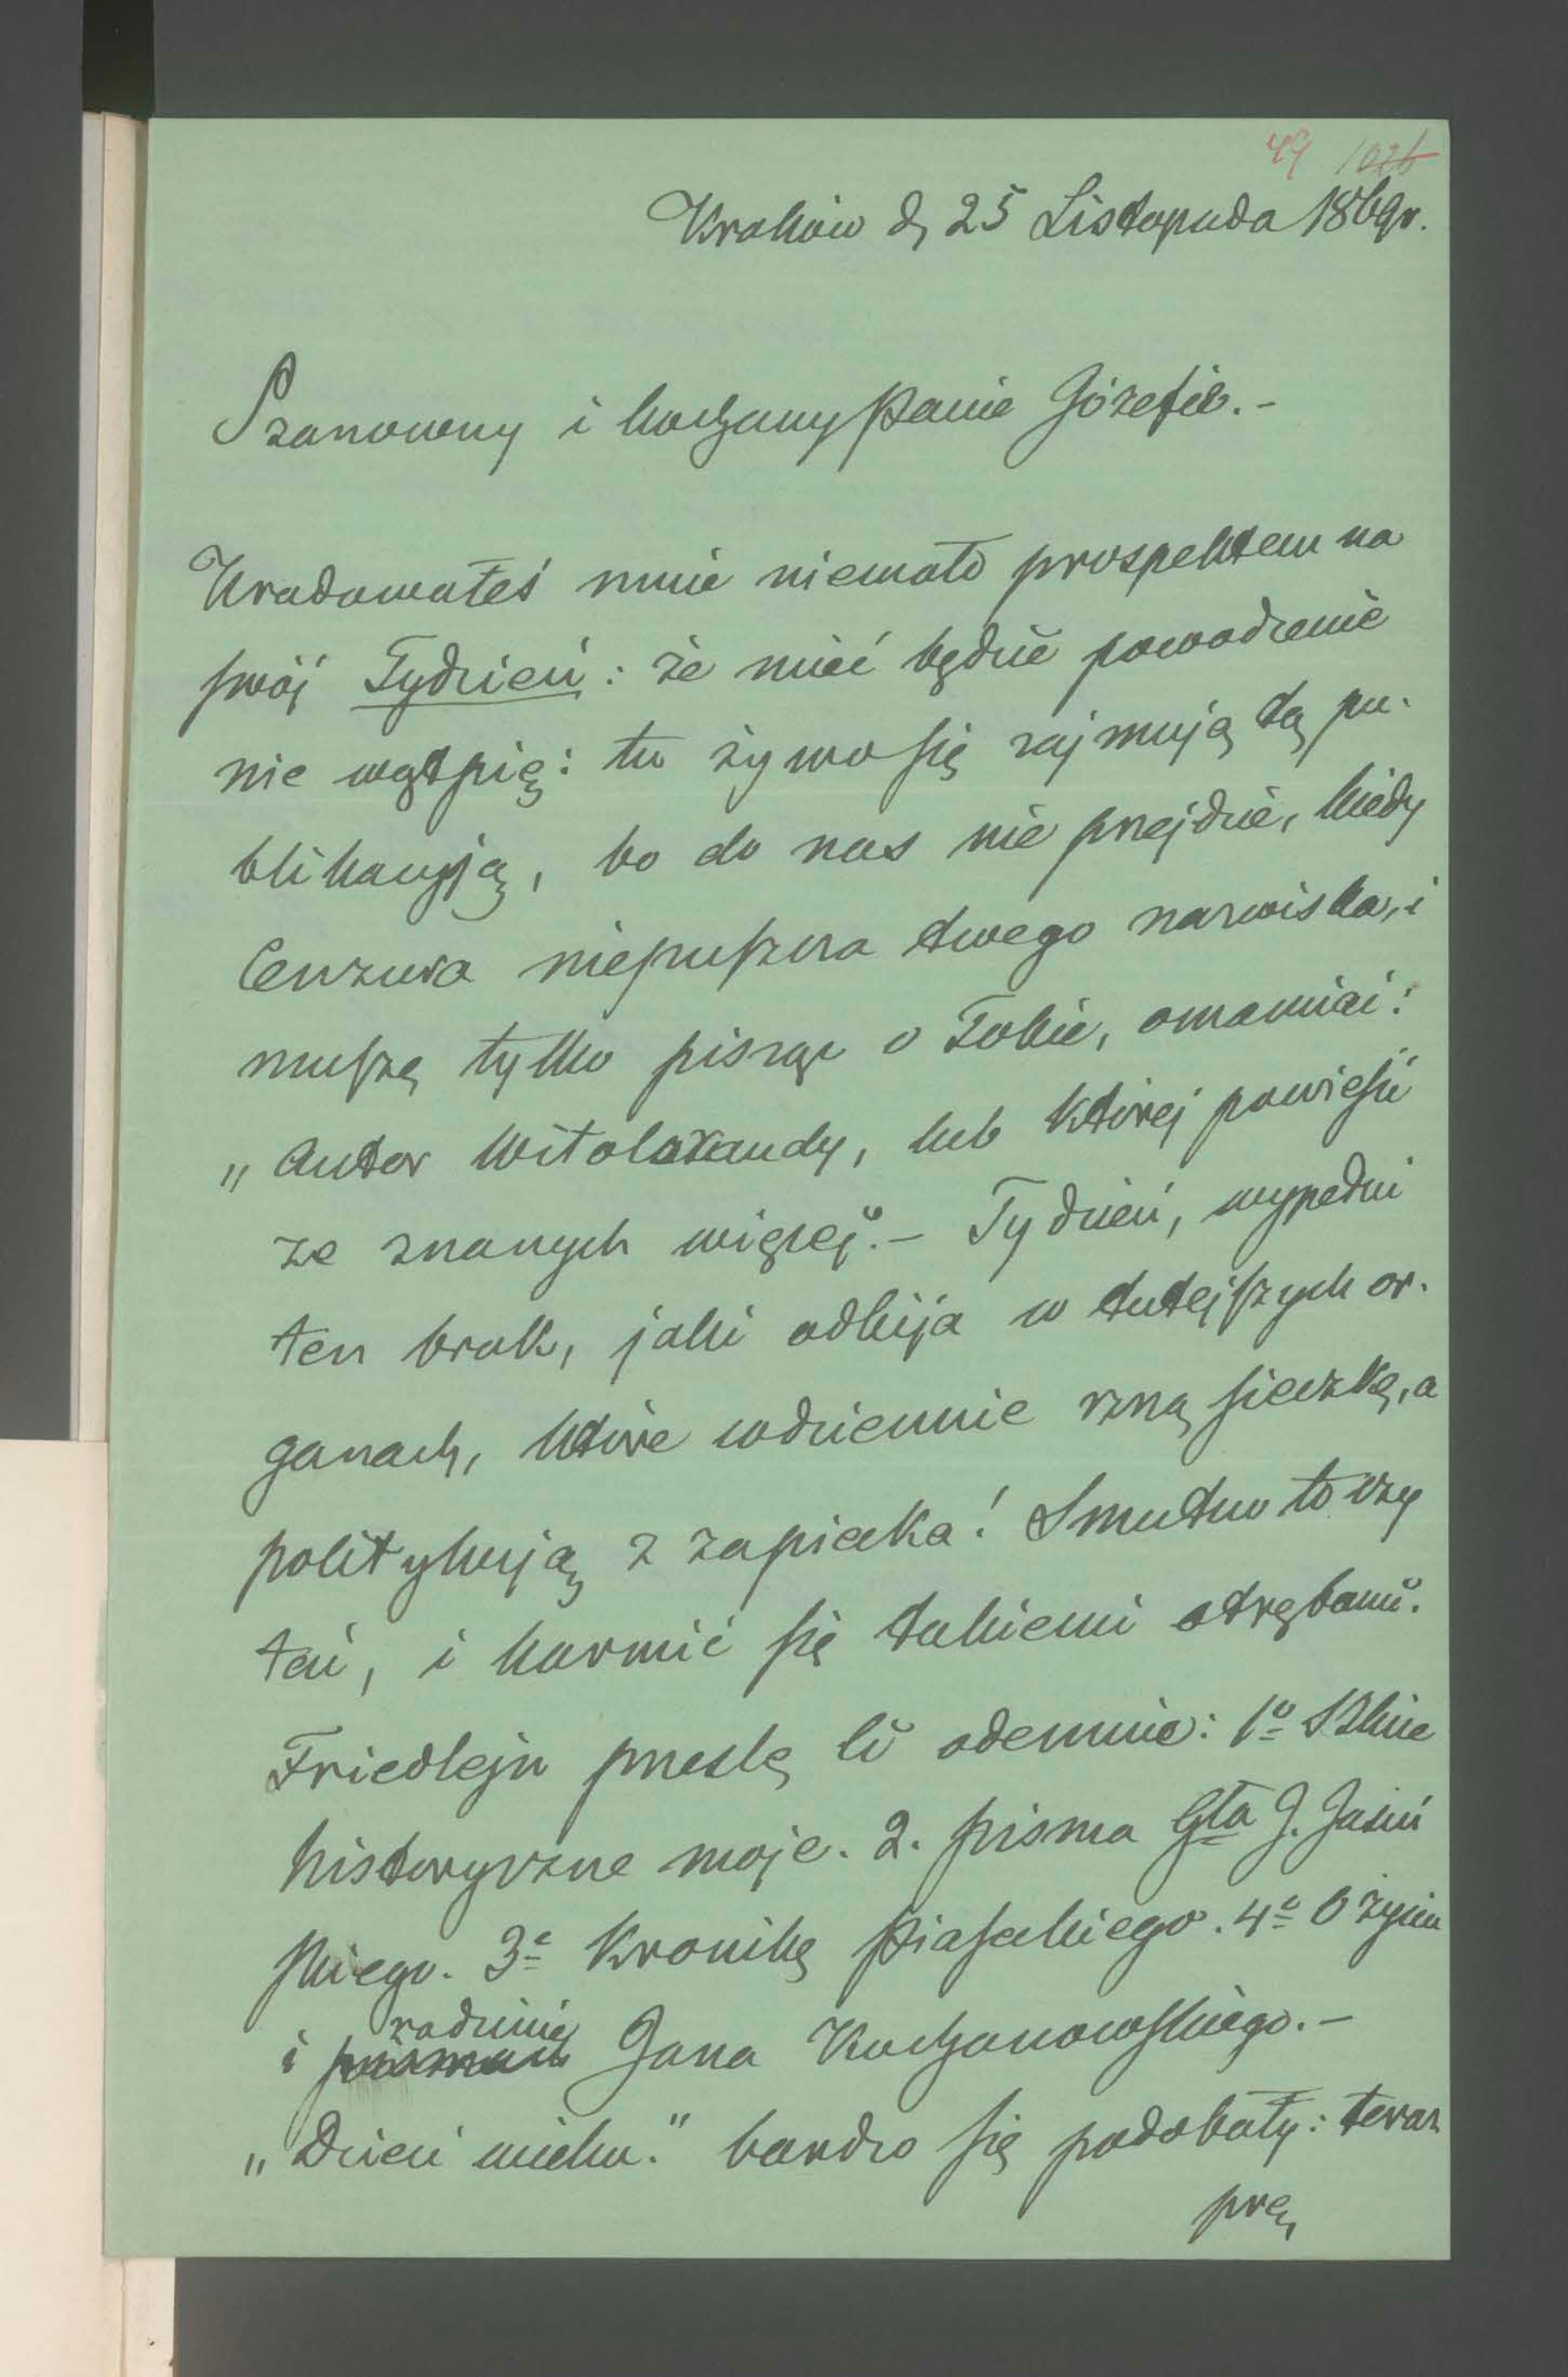 49 1026
Kraków d, 25 Listopada 1869r.
Szanowny i kochany Panie Józefie.-
Uradowałeś mnie niemało prospektem na
swój Tydzień: że mieć będzie powodzenie
nie wątpię: tu żywo się zajmują tą pu-
blikacyją, bo do nas nie przejdzie, kiedy
Cenzura niepuszcza twego nazwiska, i
muszę tylko pisząc o Tobie, omawiać:
„Autor Witolorandy, lub której powieści
ze znanych więcej".- Tydzień, wypełni
ten brak, jaki odbija w tutejszych or-
ganach, które codziennie rzną sieczkę, a
politykują z zapiecka! Smutno to czy
tać, i karmić się takiemi otrębami.
Friedlejn prześlę Ci odemnie: 1o Szkice
historyczne moje. 2. pisma Gła J. Jasiń
skiego. 3e Kronikę Piaseckiego. 4o O życiu
i pismach rodzinie Jana Kochanowskiego.-
„Dzieci wieku." bardzo się podobały: teraz
prę